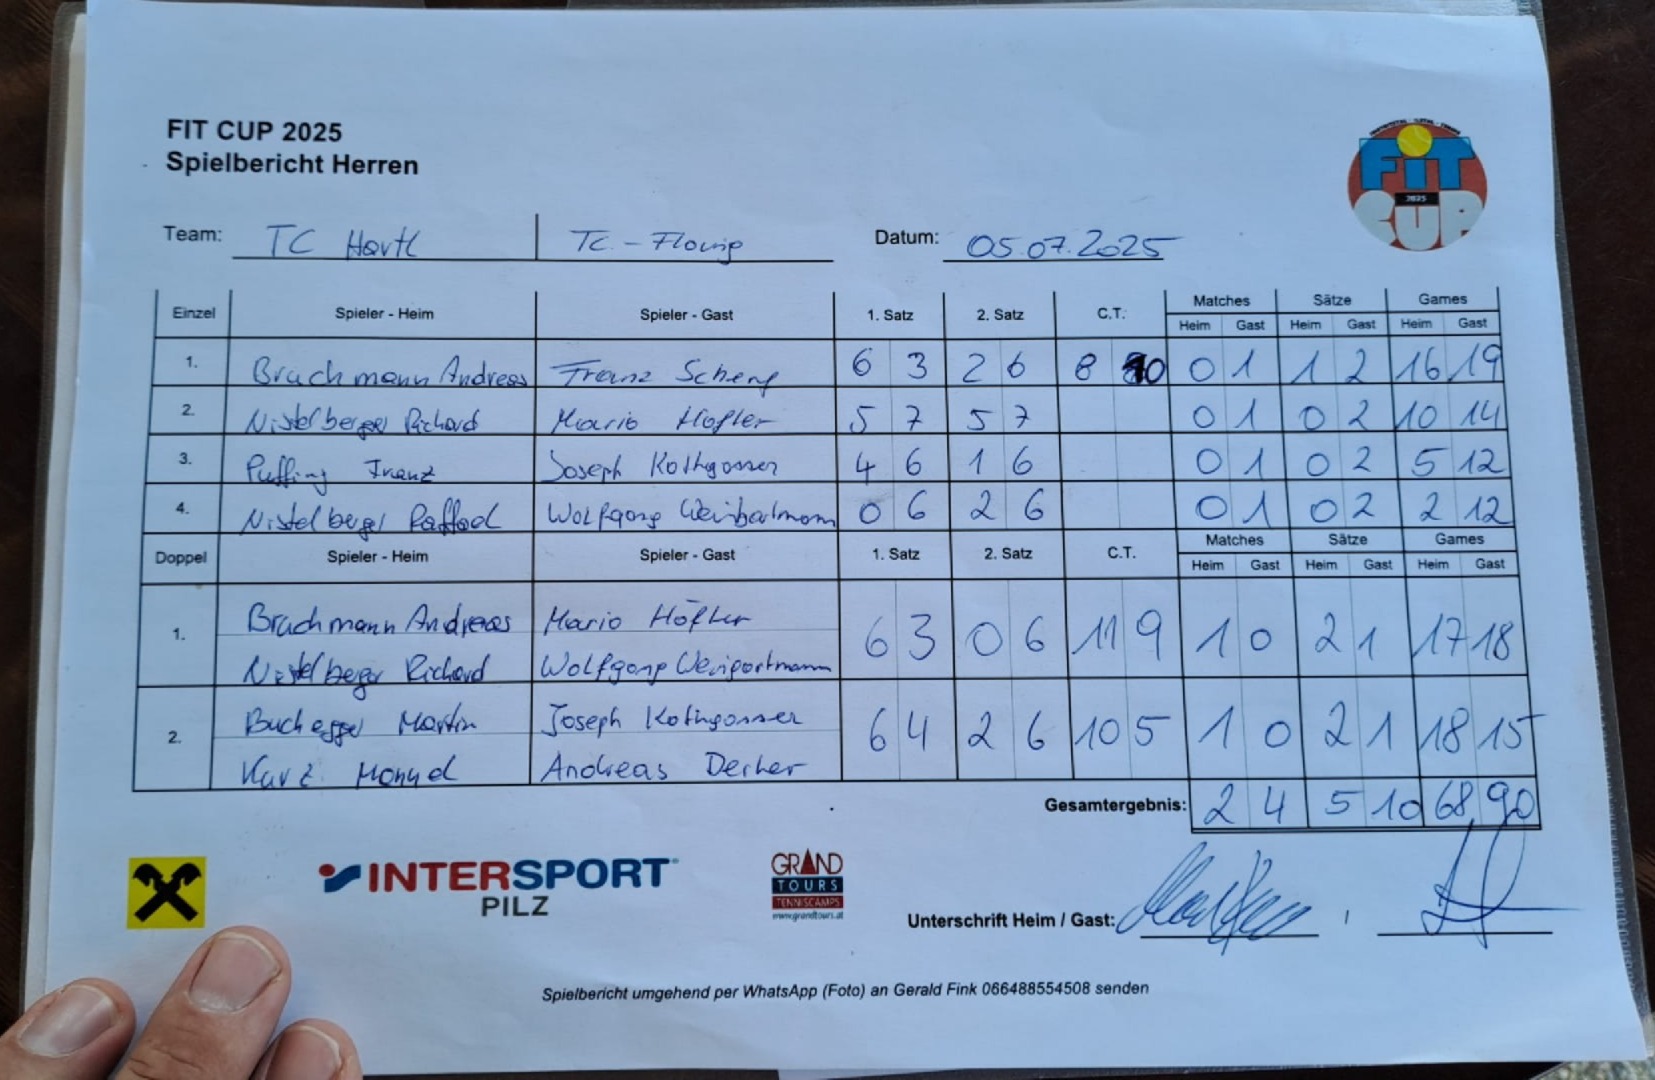 FIT CUP 2025
Spielbericht Herren
FiT
2025
CUP
Team: TC Hartl TC.-Floing Datum: 05.07.2025
Einzel Spieler - Heim Spieler - Gast 1. Satz 2. Satz C.T. Matches Sätze Games
Heim Gast Heim Gast Heim Gast
1. Brachmann Andreas Franz Scherf 6 3 2 6 8 10 0 1 1 2 16 19
2. Nistelberger Richard Mario Höfler 5 7 5 7 0 1 0 2 10 14
3. Puffing Franz Joseph Kothgasser 4 6 1 6 0 1 0 2 5 12
4. Nistelberger Raffael Wolfgang 0 6 2 6 0 1 0 2 2 12
Doppel Spieler - Heim Spieler - Gast 1. Satz 2. Satz C.T. Matches Sätze Games
Heim Gast Heim Gast Heim Gast
Brachmann Andreas Mario Höfler
1. 6 3 0 6 11 9 1 0 2 1 17 18
Nistelberger Richard Wolfgang
Buchegger Martin Joseph Kothgasser
2. 6 4 2 6 10 5 1 0 2 1 18 15
Andreas
Gesamtergebnis: 2 4 5 10 68 90
INTERSPORT
PILZ
GRAND
TOURS
TENNISCAMPS
www.grandtours.at
Unterschrift Heim / Gast: /
Spielbericht umgehend per WhatsApp (Foto) an Gerald Fink 066488554508 senden